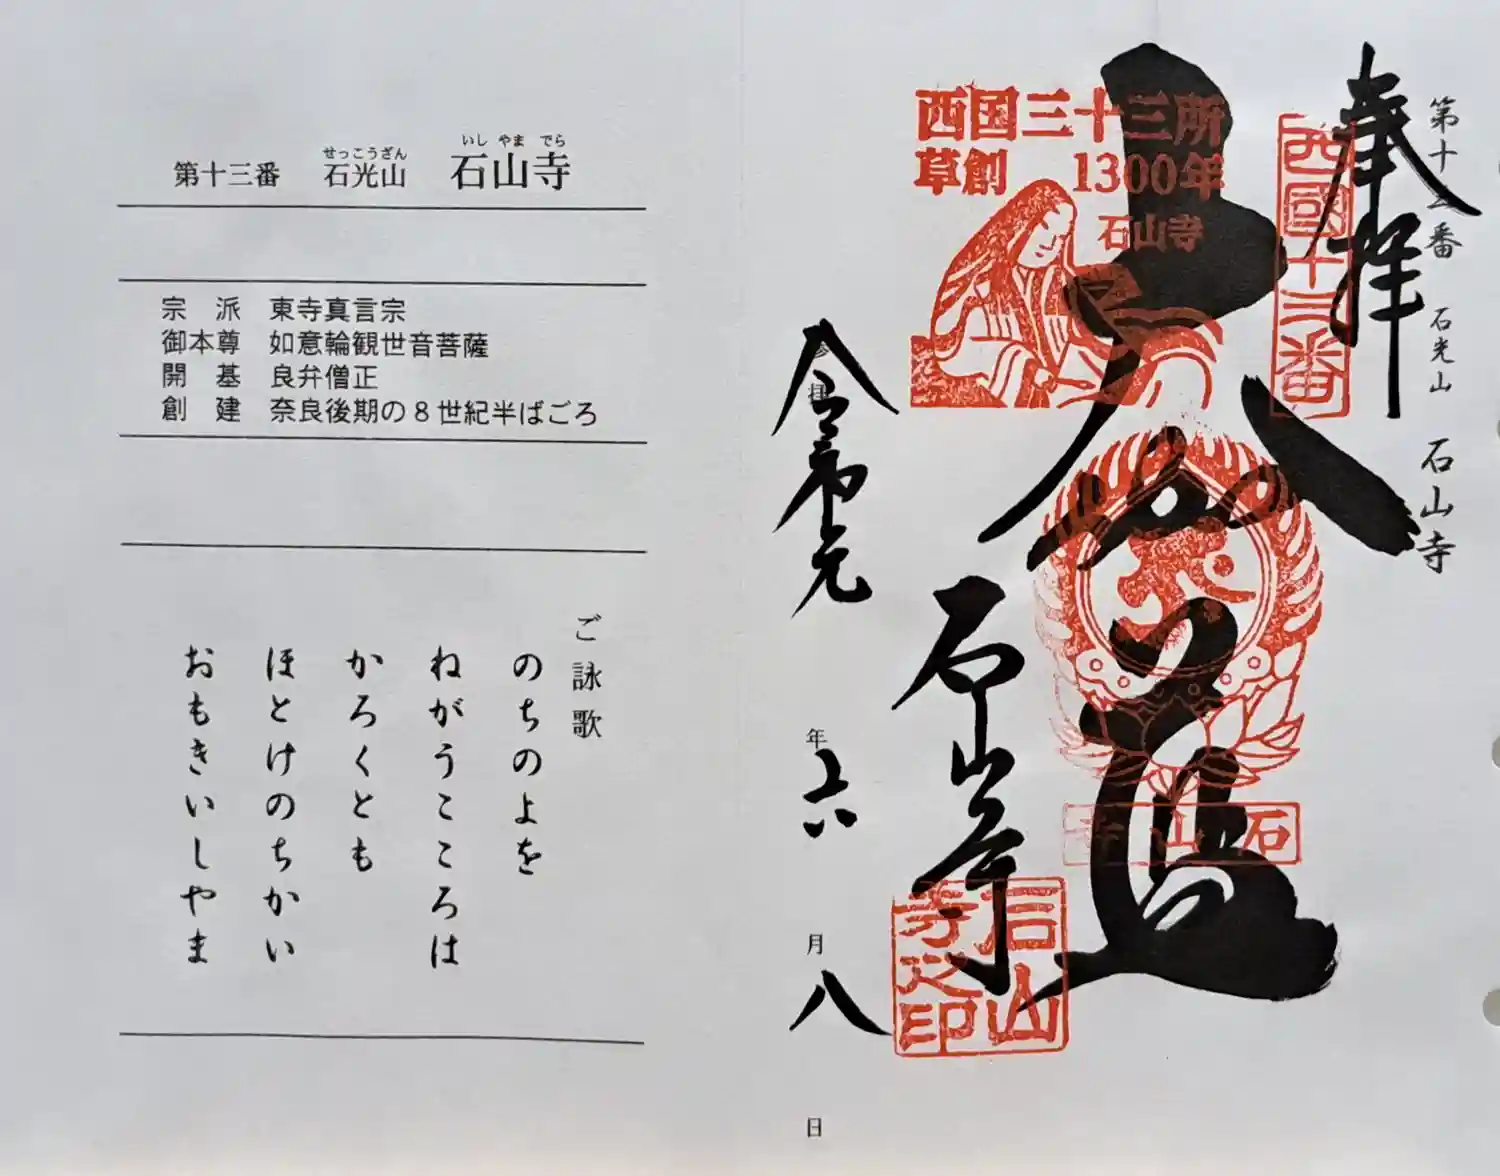 第十三番 石光山 石山寺
せっこうざん
いしやまでら
宗派 東寺真言宗
御本尊 如意輪観世音菩薩
開基 良弁僧正
創建 奈良後期の8世紀半ばごろ
ご詠歌
のちのよを
ねがうこころは
かろくとも
ほとけのちかい
おもきいしやま
第十三番 石光山 石山寺
奉拝
西國十三番
西国三十三所
草創 1300年
石山寺
大悲殿
石山寺
石山寺
石山寺之印
参拝
令和元年六月八日